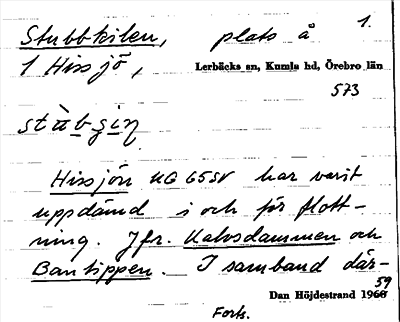 Stubbkilen, plats å 1.
1 Hissjö, Lerbäcks sn, Kumla hd, Örebro län
573
stùbᶊin
Hissjön UG 65SV har varit
uppdämd i och för flott-
ning. Jfr. Kalvsdammen och
Bantippen. I samband där-
59
Dan Höjdestrand 1960
Forts.